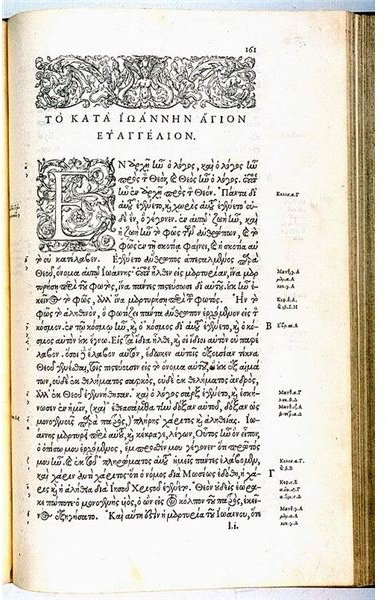 161
ΤΟ ΚΑΤΑ ΙΩΑΝΝΗΝ ΑΓΙΟΝ
ΕΥΑΓΓΕΛΙΟΝ.
ΕΝ ἀρχῇ ἦν ὁ λόγος, καὶ ὁ λόγος ἦν
πρὸς τ Θεὸν, καὶ Θεὸς ἦν ὁ λόγος. οὗτος
ἦν ἐν ἀρχῇ πρὸς τ Θεόν. Πάντα δι'
αὐτοῦ ἐγένετο, καὶ χωρὶς αὐτοῦ ἐγένετο οὐ-
δὲ ἓν, ὃ γέγονεν. ἐν αὐτῷ ζωὴ ἦν, καὶ
ἡ ζωὴ ἦν τὸ φῶς τῶν ἀνθρώπων, καὶ τὸ
φῶς ἐν τῇ σκοτίᾳ φαίνει, καὶ ἡ σκοτία αὐ-
τὸ οὐ κατέλαβεν. Ἐγένετο ἄνθρωπος ἀπεσταλμένος παρὰ
Θεοῦ, ὄνομα αὐτῷ Ἰωάννης· οὗτος ἦλθεν εἰς μαρτυρίαν, ἵνα μαρ-
τυρήσῃ περὶ τοῦ φωτὸς, ἵνα πάντες πιστεύσωσι δι' αὐτοῦ. οὐκ ἦν ἐ-
κεῖνος τὸ φῶς, ἀλλ' ἵνα μαρτυρήσῃ περὶ τοῦ φωτός. Ἦν τὸ
φῶς τὸ ἀληθινὸν, ὃ φωτίζει πάντα ἄνθρωπον ἐρχόμενον εἰς τ
κόσμον. ἐν τῷ κόσμῳ ἦν, καὶ ὁ κόσμος δι' αὐτοῦ ἐγένετο, καὶ ὁ κόσ-
μος αὐτὸν οὐκ ἔγνω. Εἰς τὰ ἴδια ἦλθε, καὶ οἱ ἴδιοι αὐτὸν οὐ παρέ-
λαβον. ὅσοι δὲ ἔλαβον αὐτὸν, ἔδωκεν αὐτοῖς ἐξουσίαν τέκνα
Θεοῦ γενέσθαι, τοῖς πιστεύουσιν εἰς τὸ ὄνομα αὐτοῦ, οἳ οὐκ ἐξ αἱμά-
των, οὐδὲ ἐκ θελήματος σαρκὸς, οὐδὲ ἐκ θελήματος ἀνδρὸς,
ἀλλ' ἐκ Θεοῦ ἐγεννήθησαν. καὶ ὁ λόγος σὰρξ ἐγένετο, καὶ ἐσκή-
νωσεν ἐν ἡμῖν, (καὶ ἐθεασάμεθα τὴν δόξαν αὐτοῦ, δόξαν ὡς
μονογενοῦς παρὰ πατρὸς,) πλήρης χάριτος καὶ ἀληθείας. Ἰω-
άννης μαρτυρεῖ περὶ αὐτοῦ, καὶ κέκραγε, λέγων, Οὗτος ἦν ὃν εἶπον,
ὁ ὀπίσω μου ἐρχόμενος, ἔμπροσθέν μου γέγονεν· ὅτι πρῶτός
μου ἦν. καὶ ἐκ τοῦ πληρώματος αὐτοῦ ἡμεῖς πάντες ἐλάβομεν,
καὶ χάριν ἀντὶ χάριτος· ὅτι ὁ νόμος διὰ Μωσέως ἐδόθη, ἡ χά-
ρις καὶ ἡ ἀλήθεια διὰ Ἰησοῦ Χριστοῦ ἐγένετο. Θεὸν οὐδεὶς ἑώρα-
κε πώποτε· ὁ μονογενὴς υἱὸς, ὁ ὢν εἰς τὸν κόλπον τοῦ πατρὸς, ἐκεῖ-
νος ἐξηγήσατο. Καὶ αὕτη ἐστὶν ἡ μαρτυρία τοῦ Ἰωάννου, ὅτε
I.i.
Β
Γ